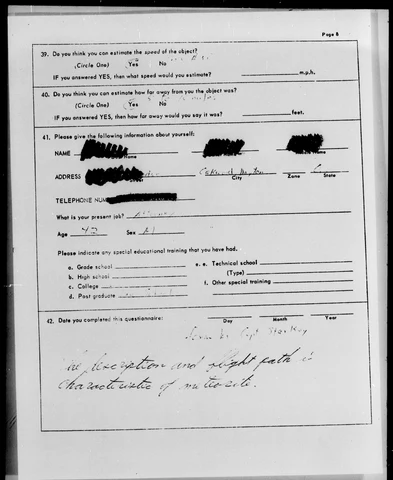 Page 8
39. Do you think you can estimate the speed of the object?
(Circle One) Yes No
IF you answered YES, then what speed would you estimate? m.p.h.
40. Do you think you can estimate how far away from you the object was?
(Circle One) Yes No
IF you answered YES, then how far away would you say it was? feet.
41. Please give the following information about yourself:
NAME
ADDRESS
City Zone State
TELEPHONE NUM
What is your present job?
Age 42 Sex M
Please indicate any special educational training that you have had.
a. Grade school e. Technical school
b. High school (Type)
c. College f. Other special training
d. Post graduate
42. Date you completed this questionnaire:
Day Month Year
description and flight path is
characteristic of meteorite.